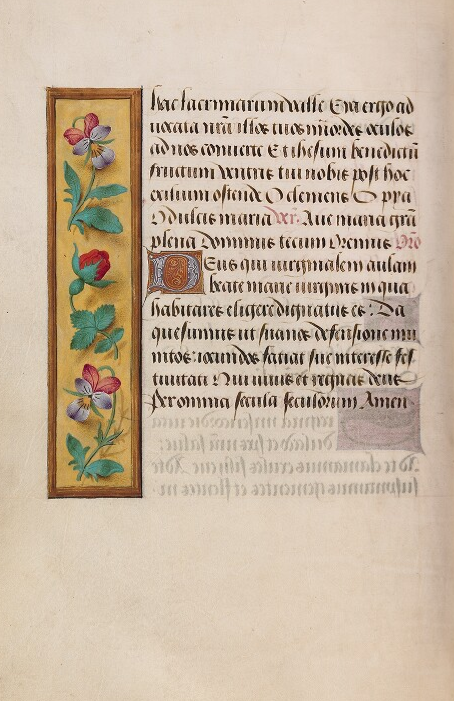 hac lacrimarum valle Eya ergo ad
uocata nr̃a illos tuos mīcdes oculos
ad nos conuerte Et ihesum benedictū
fructum ventris tui nobis post hoc
exilium ostende O clemens O pya
O dulcis maria Ver̃. Aue maria grã
plena dominus tecum Oremus Orõ
Deus qui uirginalem aulam
beate marie uirginis in qua
habitares eligere dignatus es: Da
quesumus ut suanos defensione mu
nitos: iocundos faciat sue interesse fes
tiuitati Qui uiuis et regnas deus
Per omnia secula seculorum Amen